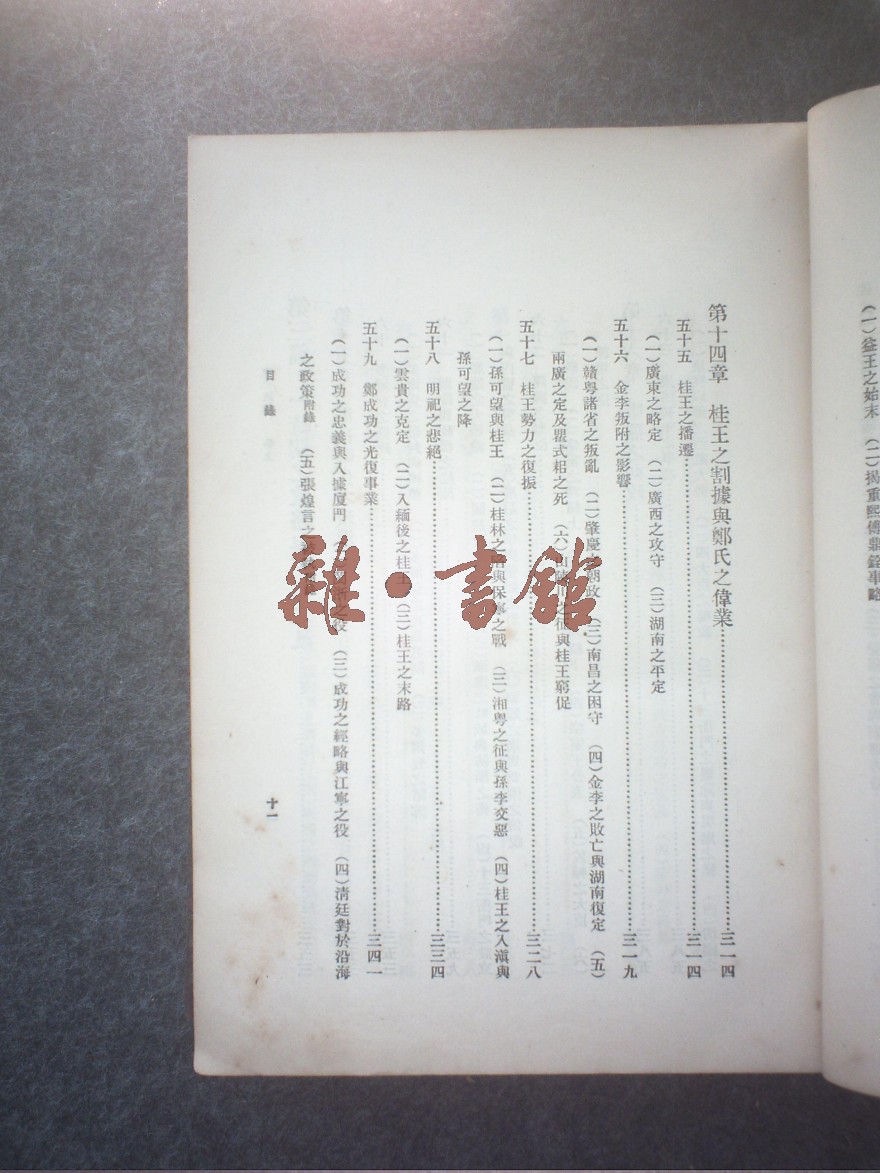 (一)益王之始末 (二)揭重熙傅鼎銓事略
第十四章 桂王之割據與鄭氏之偉業……三一四
五十五 桂王之播遷……三一四
(一)廣東之略定 (二)廣西之攻守 (三)湖南之平定
五十六 金李叛附之影響……三一九
(一)贛粵諸省之叛亂 (二)肇慶之朝政 (三)南昌之困守 (四)金李之敗亡與湖南復定 (五)
兩廣之定及瞿式耜之死 (六) 之征與桂王窮促
五十七 桂王勢力之復振……三二八
(一)孫可望與桂王 (二)桂林之 與保寧之戰 (三)湘粵之征與孫李交惡 (四)桂王之入滇與
孫可望之降
五十八 明祀之悲絕……三三四
(一)雲貴之克定 (二)入緬後之桂王 (三)桂王之末路
五十九 鄭成功之光復事業……三四一
(一)成功之忠義與入據廈門 之役 (三)成功之經略與江寧之役 (四)清廷對於沿海
之政策附錄 (五)張煌言之
目錄
十一
雜·書館